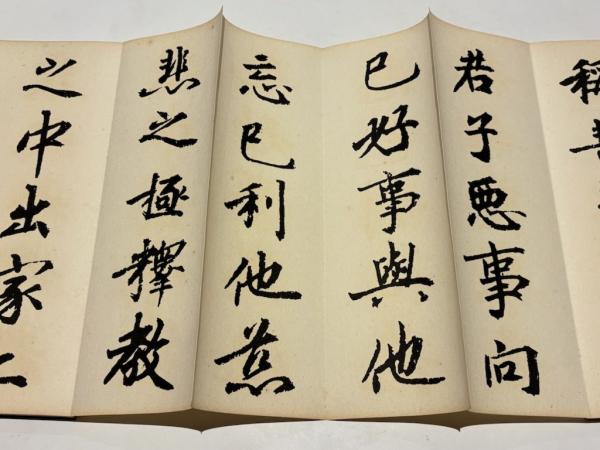 稱菩
君子悪事向
己好事與他
忘己利他慈
悲之極釋教
之中出家二